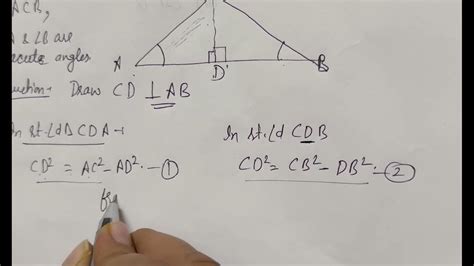 ACB,
& ∠B are
acute angles
uction:- Draw CD ⊥ AB
A D B
In rt.∠d Δ CDA →
CD² = AC² - AD². — ①
In rt.∠d CDB
CD² = CB² - DB². — ②